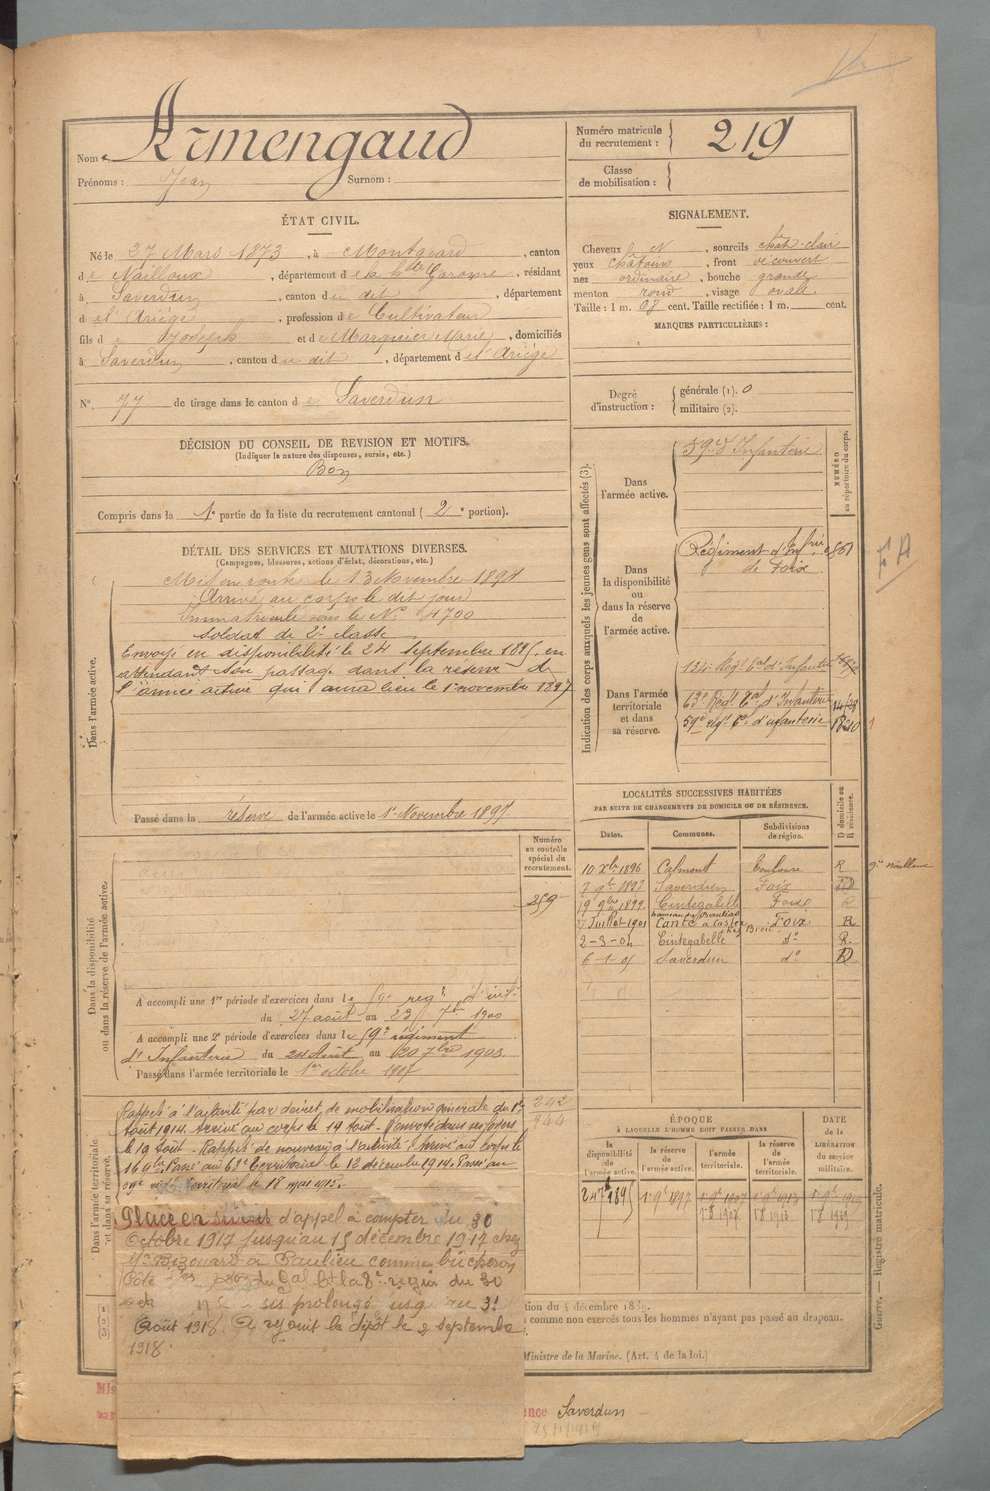 Nom : Armengaud
Prénoms : Jean Surnom :
Numéro matricule du recrutement : 219
Classe de mobilisation :
ÉTAT CIVIL.
Né le 27 Mars 1873, à Montgeard, canton
de Nailloux, département de la Hte Garonne, résidant
à Saverdun, canton du dit, département
de l'Ariège, profession de Cultivateur
fils de Joseph et de Marquier Marie, domiciliés
à Saverdun, canton du dit, département de l'Ariège
N° 77 de tirage dans le canton de Saverdun
SIGNALEMENT.
Cheveux N, sourcils chât-clair
yeux châtains, front découvert
nez ordinaire, bouche grande
menton rond, visage ovale
Taille : 1 m. 68 cent. Taille rectifiée : 1 m. cent.
MARQUES PARTICULIÈRES :
Degré d'instruction : générale (1). 0
militaire (2).
DÉCISION DU CONSEIL DE REVISION ET MOTIFS.
(Indiquer la nature des dispenses, sursis, etc.)
Bon
Compris dans la 1e partie de la liste du recrutement cantonal ( 2e portion).
DÉTAIL DES SERVICES ET MUTATIONS DIVERSES.
(Campagnes, blessures, actions d'éclat, décorations, etc.)
Dans l'armée active.
Mis en route le 13 Novembre 1894
Arrivé au corps le dit jour
Immatriculé sous le N° 4700
Soldat de 2e classe
Envoyé en disponibilité le 24 septembre 1895, en
attendant son passage dans la réserve de
l'armée active qui aura lieu le 1er novembre 1897
Passé dans la réserve de l'armée active le 1er Novembre 1897
Indication des corps auxquels les jeunes gens sont affectés (3).
NUMÉRO au répertoire du corps.
Dans l'armée active.
59e d'Infanterie
Dans la disponibilité ou dans la réserve de l'armée active.
Régiment d'Infrie
de Foix
Dans l'armée territoriale et dans sa réserve.
134e Régt tal d'Infanterie
63e Régt tal d'Infanterie
59e régt d'infanterie
FA
LOCALITÉS SUCCESSIVES HABITÉES
PAR SUITE DE CHANGEMENTS DE DOMICILE OU DE RÉSIDENCE.
Dates. Communes. Subdivisions de région. D domicile ou R résidence.
10 Xbre 1896 Calmont Toulouse R
7 9bre 1897 Saverdun Foix D
19 9bre 1899 Cintegabelle Foix R
27 Juillet 1901 Canté Foix R
2-3-04 Cintegabelle do R.
6-1-05 Saverdun do D
Dans la disponibilité ou dans la réserve de l'armée active.
Numéro au contrôle spécial du recrutement.
259
A accompli une 1re période d'exercices dans le 59e régt d'inf.
du 27 août au 23 7bre 1900
A accompli une 2e période d'exercices dans le 59e régiment
d'Infanterie du 24 Août au 20 7bre 1903.
Passé dans l'armée territoriale le 1er octobre 1907
Dans l'armée territoriale et dans sa réserve.
242
944
Rappelé à l'activité par décret de mobilisation générale du 1er
Août 1914. Arrivé au corps le 14 Août. Renvoyé dans ses foyers
le 19 Août. Rappelé de nouveau à l'activité. Arrivé au corps le
Passé au 63e territorial le 12 décembre 1914. Passé au
59e régt territorial le 18 mai 1915.
Placé en sursis d'appel à compter du 30
Octobre 1917 jusqu'au 15 décembre 1917 chez
Mr Bizouard à Paulieu comme bûcheron
Côte
région du 30
sis prolongé jusqu'au 31
Août 1918. A rejoint le dépôt le 2 septembre
1918.
ÉPOQUE
À LAQUELLE L'HOMME DOIT PASSER DANS
DATE de la LIBÉRATION du service militaire.
la disponibilité de l'armée active. la réserve de l'armée active. l'armée territoriale. la réserve de l'armée territoriale.
24 7bre 1895 1er 9bre 1897 1er 9bre 1907 1er 9bre 1913 1er 9bre 1919
tion du 4 décembre 18
comme non exercés tous les hommes n'ayant pas passé au drapeau.
Ministre de la Marine. (Art. 4 de la loi.)
Guerre. — Registre matricule.
ence Saverdun